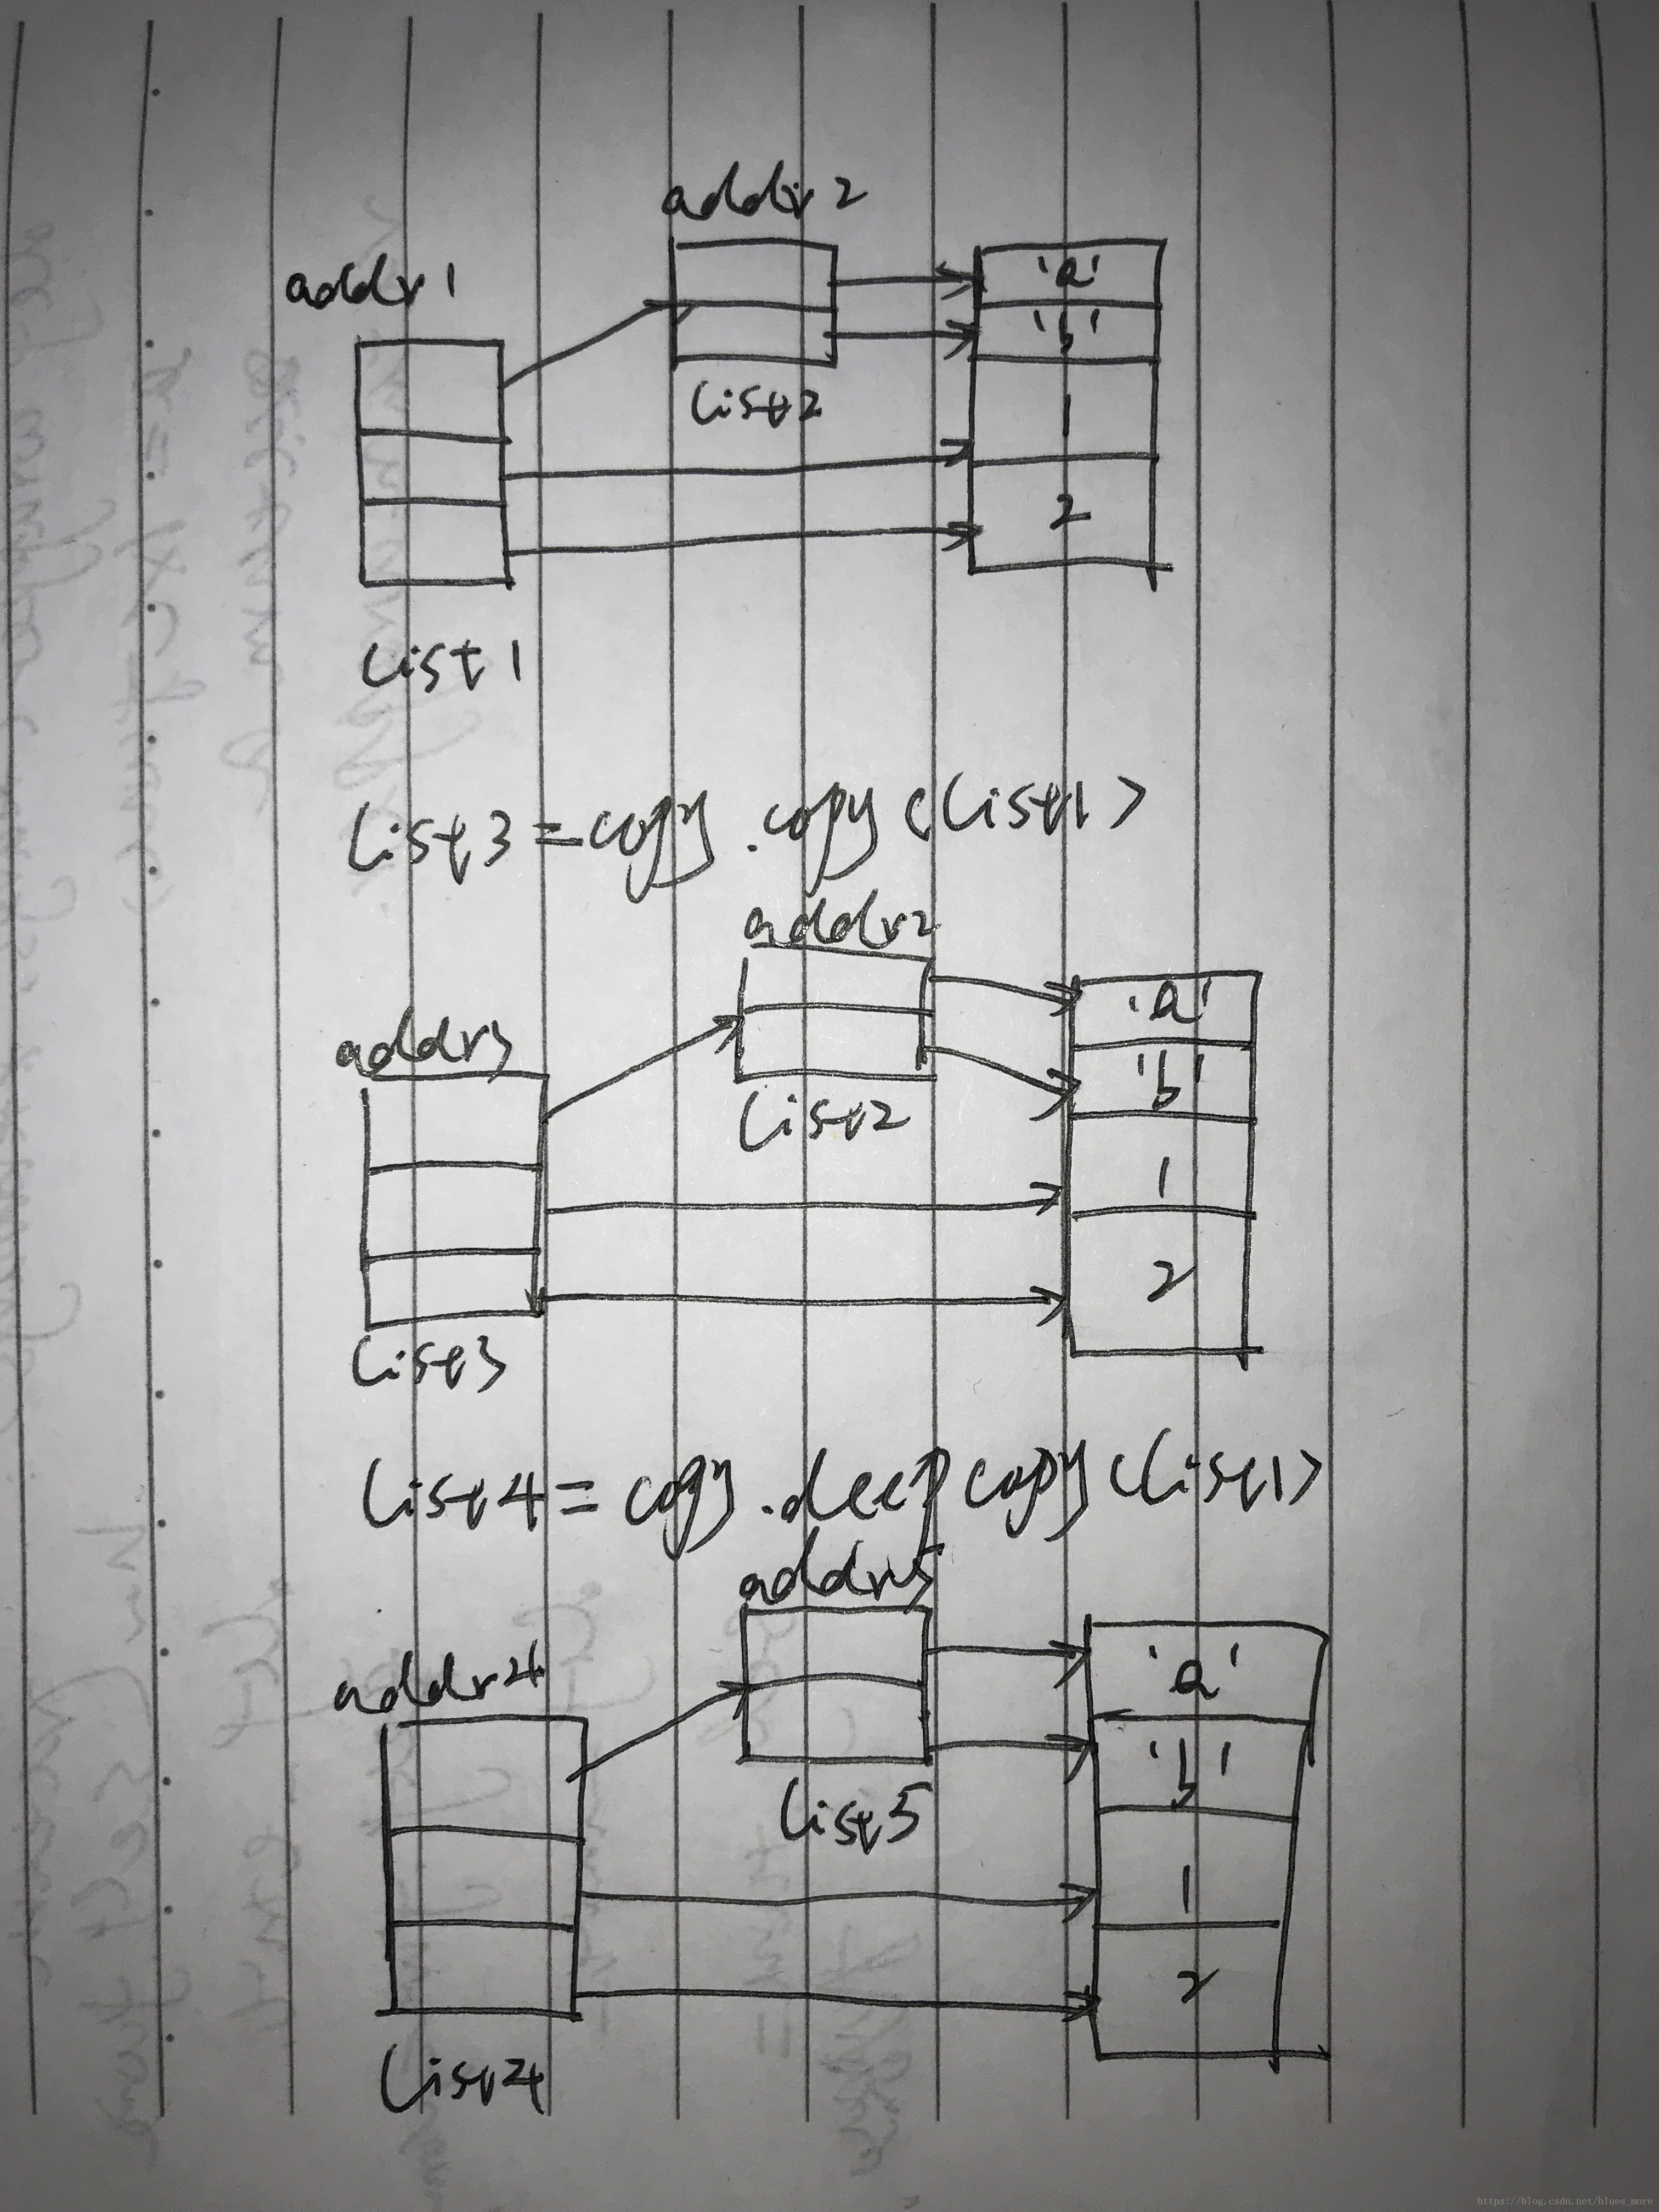 addr2
addr1
'a'
'b'
list2
1
2
list1
list3=copy.copy(list1)
addr2
addr3
'a'
'b'
list2
1
2
list3
list4=copy.deepcopy(list1)
addr5
addr4
'a'
'b'
list5
1
2
list4
https://blog.csdn.net/blues_more